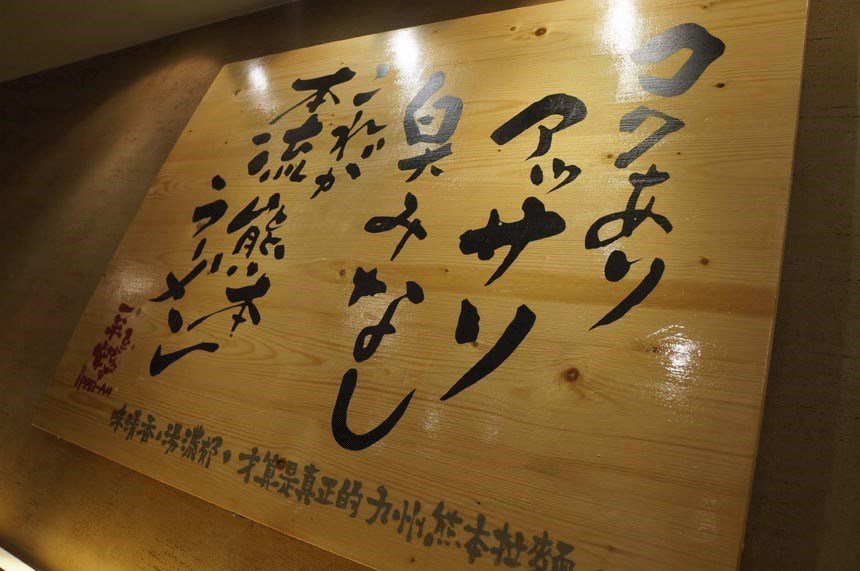 コクあり
アッサリ
臭みなし
これが
本流熊本
ラーメン
味噌香・湯濃郁・才算是真正的九州熊本拉麵